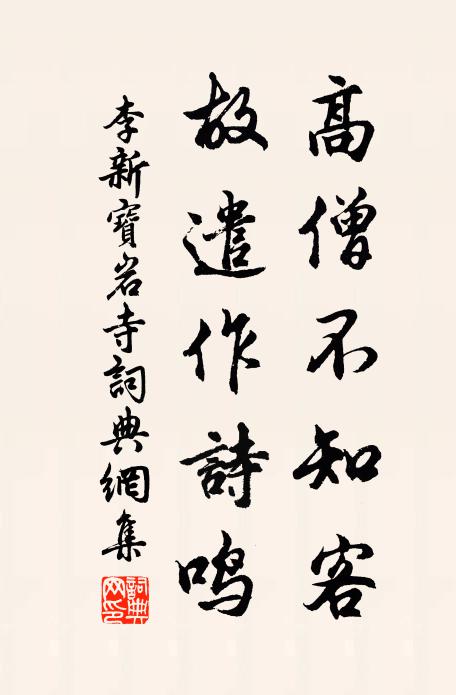 高僧不知客
故遣作詩鳴
李新寶岩寺詞典網集
詞典網印